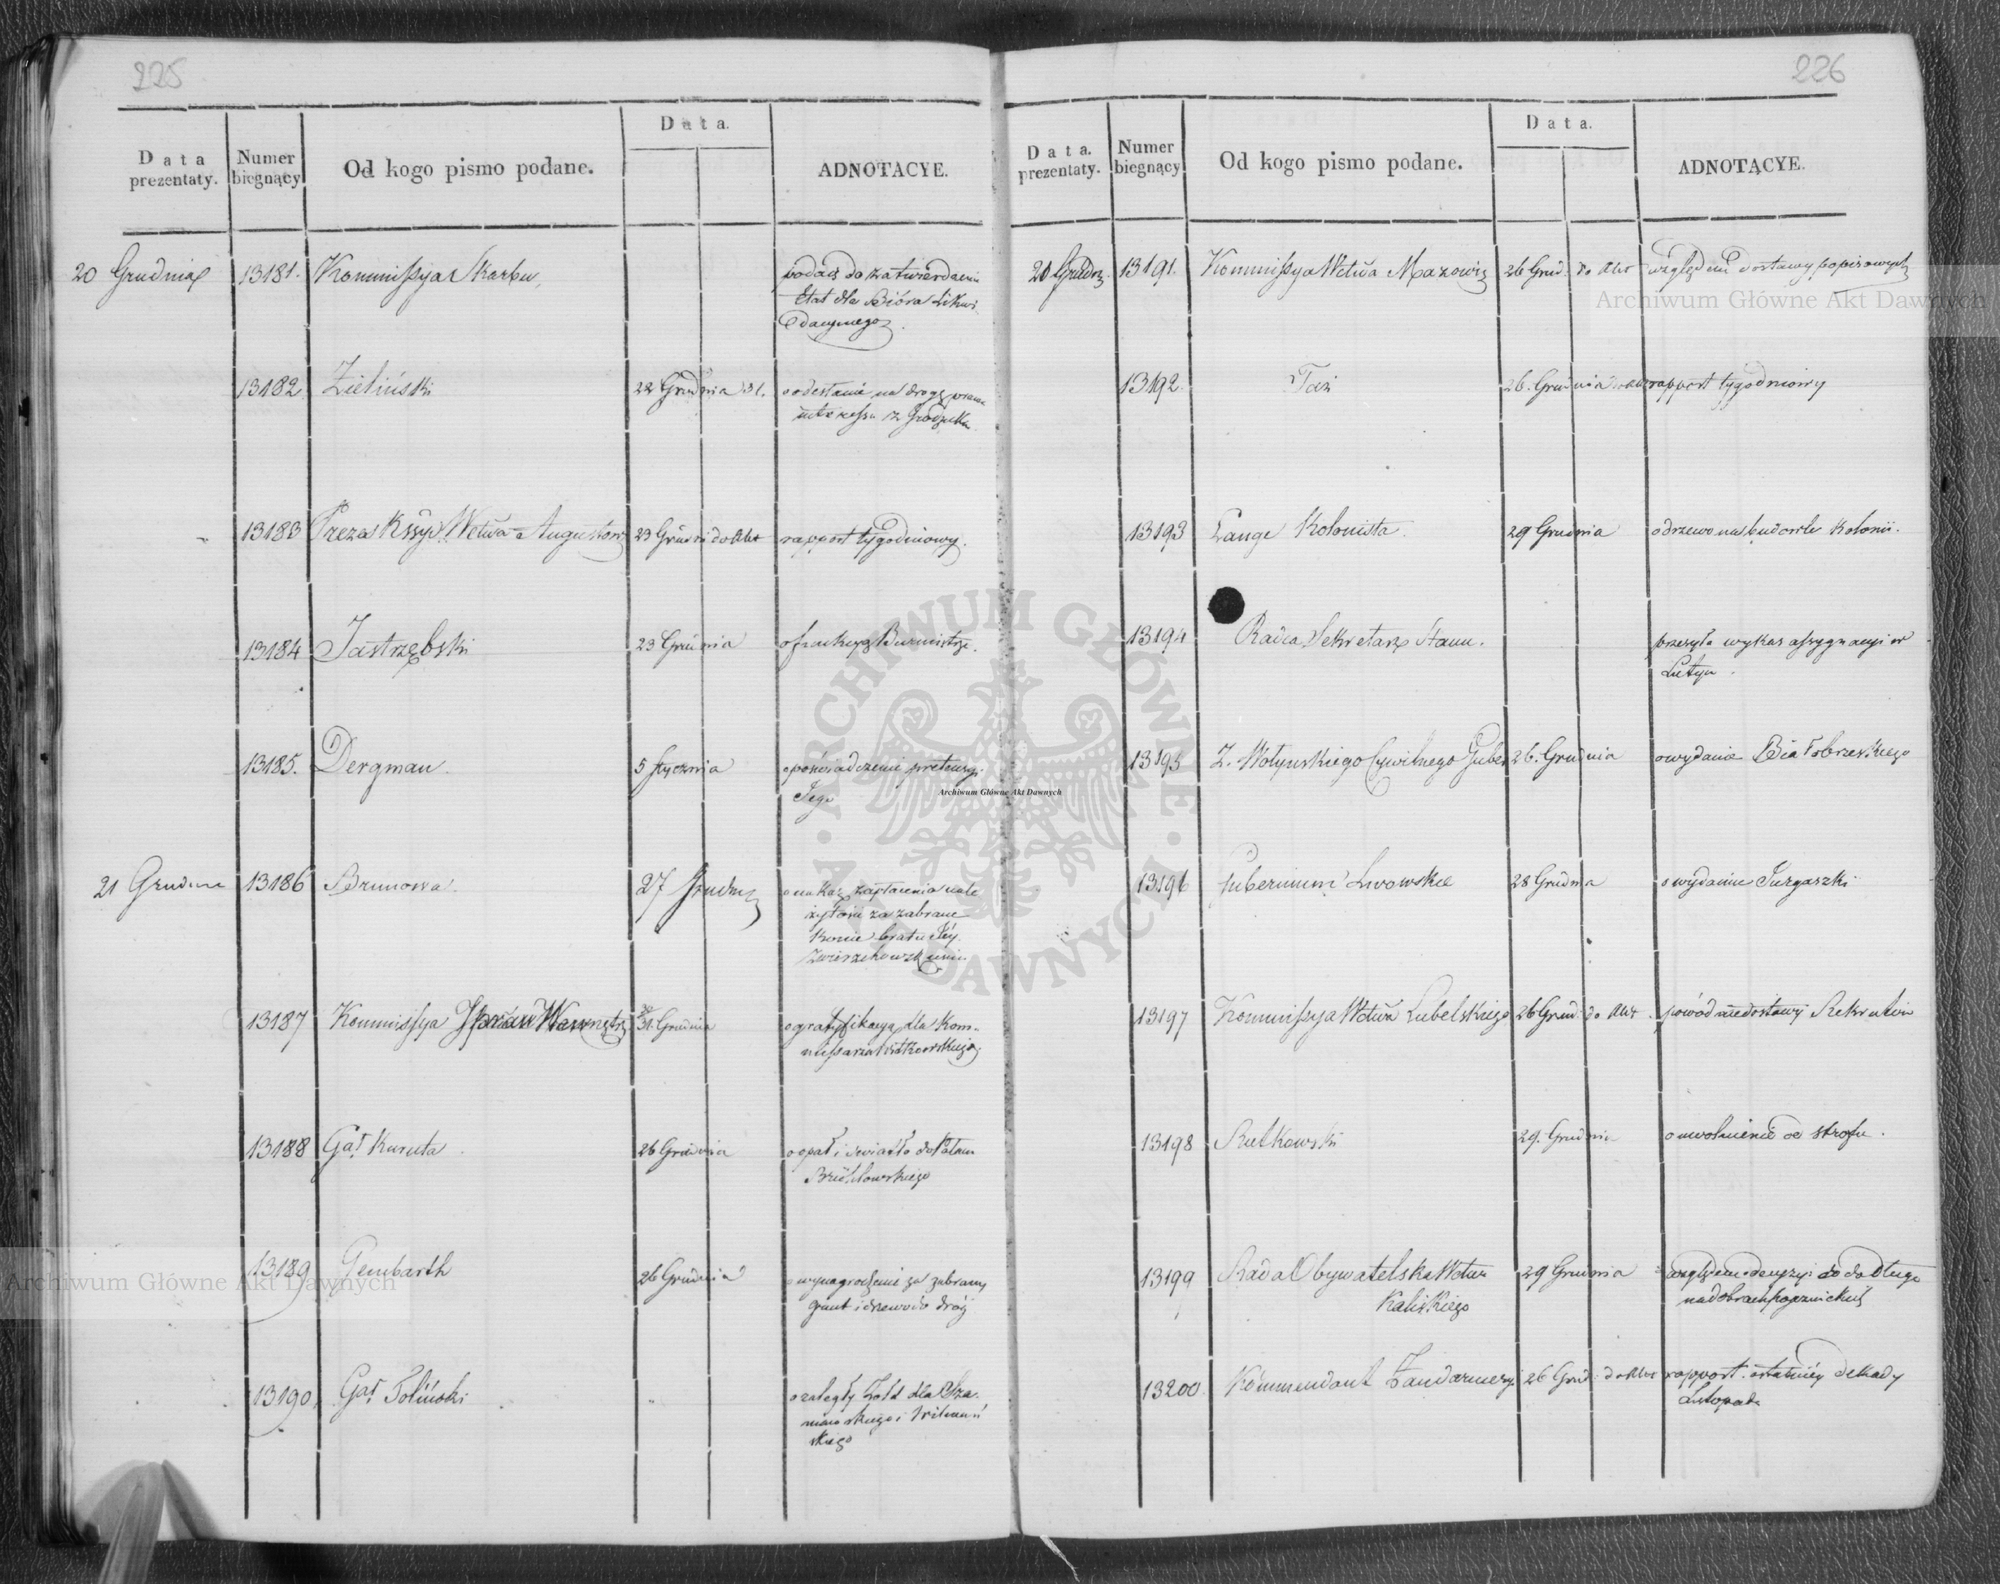 225
Data prezentaty.
Numer biegnący
Od kogo pismo podane.
Data.
ADNOTACYE.
20 Grudnia
13181.
Kommissya Skarbu
podaie do zatwierdzenia
Etat dla Bióra Likwi
dacyinego
13182
Zieliński
22 Grudnia 31.
o odesłanie na drogę
interessu z
13183
Prezes Kssyi Wwa Augustow
23 Grudni do Akt
rapport tygodniowy.
13184
Jastrzębski
23 Grudnia
o funkcyą Burmistrza.
13185.
Dergman
5 Stycznia
o poświadczenie pretensyi
Jego
21 Grudnia
13186
Brunowa.
27 Grudnia
o nakaz zapłacenia nale
żytości za zabrane
Konie bratu Jéy
Zwierzchowskiemu
13187
Kommissya Spraw Wewnętrz
31. Grudnia
o gratyfikacyą dla Kom-
missarza Witkowskiego
13188
Gał Kuruta
26 Grudnia
o opał i światło do Pałacu
Brühlowskiego
13189
Gembarth
26 Grudnia
o wynagrodzenie za zabrany
grunt i drzewo do dróg
13190
Gał Toliński
o zaległy żołd dla Sza-
skiego
226
Data. prezentaty.
Numer biegnący
Od kogo pismo podane.
Data.
ADNOTĄCYE.
21 Grudz
13191.
Kommissya Wwa Mazowiz
26 Grud. do Akt
względem dostawy popisowych
13192.
Taż
26. Grudnia
rapport tygodniowy
13193
Lange Kolonista
29 Grudnia
o drzewo na budowle Kolonii.
13194
Radca Sekretarz Stanu.
przesyła wykaz assygnacyi w
Lutym.
13195
Z. Wołynskiego Cywilnego Guber
26. Grudnia
o wydanie Białobrzeskiego
13196
Gubernium Lwowskie
28 Grudnia
o wydanie Turgaszki
13197
Kommissya Wwa Lubelskiego
26 Grud. do Akt
powód niedostawy Rekrutów
13198
Rutkowski
29. Grudnia
o uwolnienie od strofu.
13199
Rada Obywatelska Wwa
Kaliskiego
29 Grudnia
względem decyzyi co do długu
na dobrach
13200.
Kommendant Żandarmeryi
26 Grud. do Akt
rapport ostatniéy dekady
Listopada
Archiwum Główne Akt Dawnych
Archiwum Główne Akt Dawnych
Archiwum Główne Akt Dawnych
ARCHIWUM GŁÓWNE AKT DAWNYCH